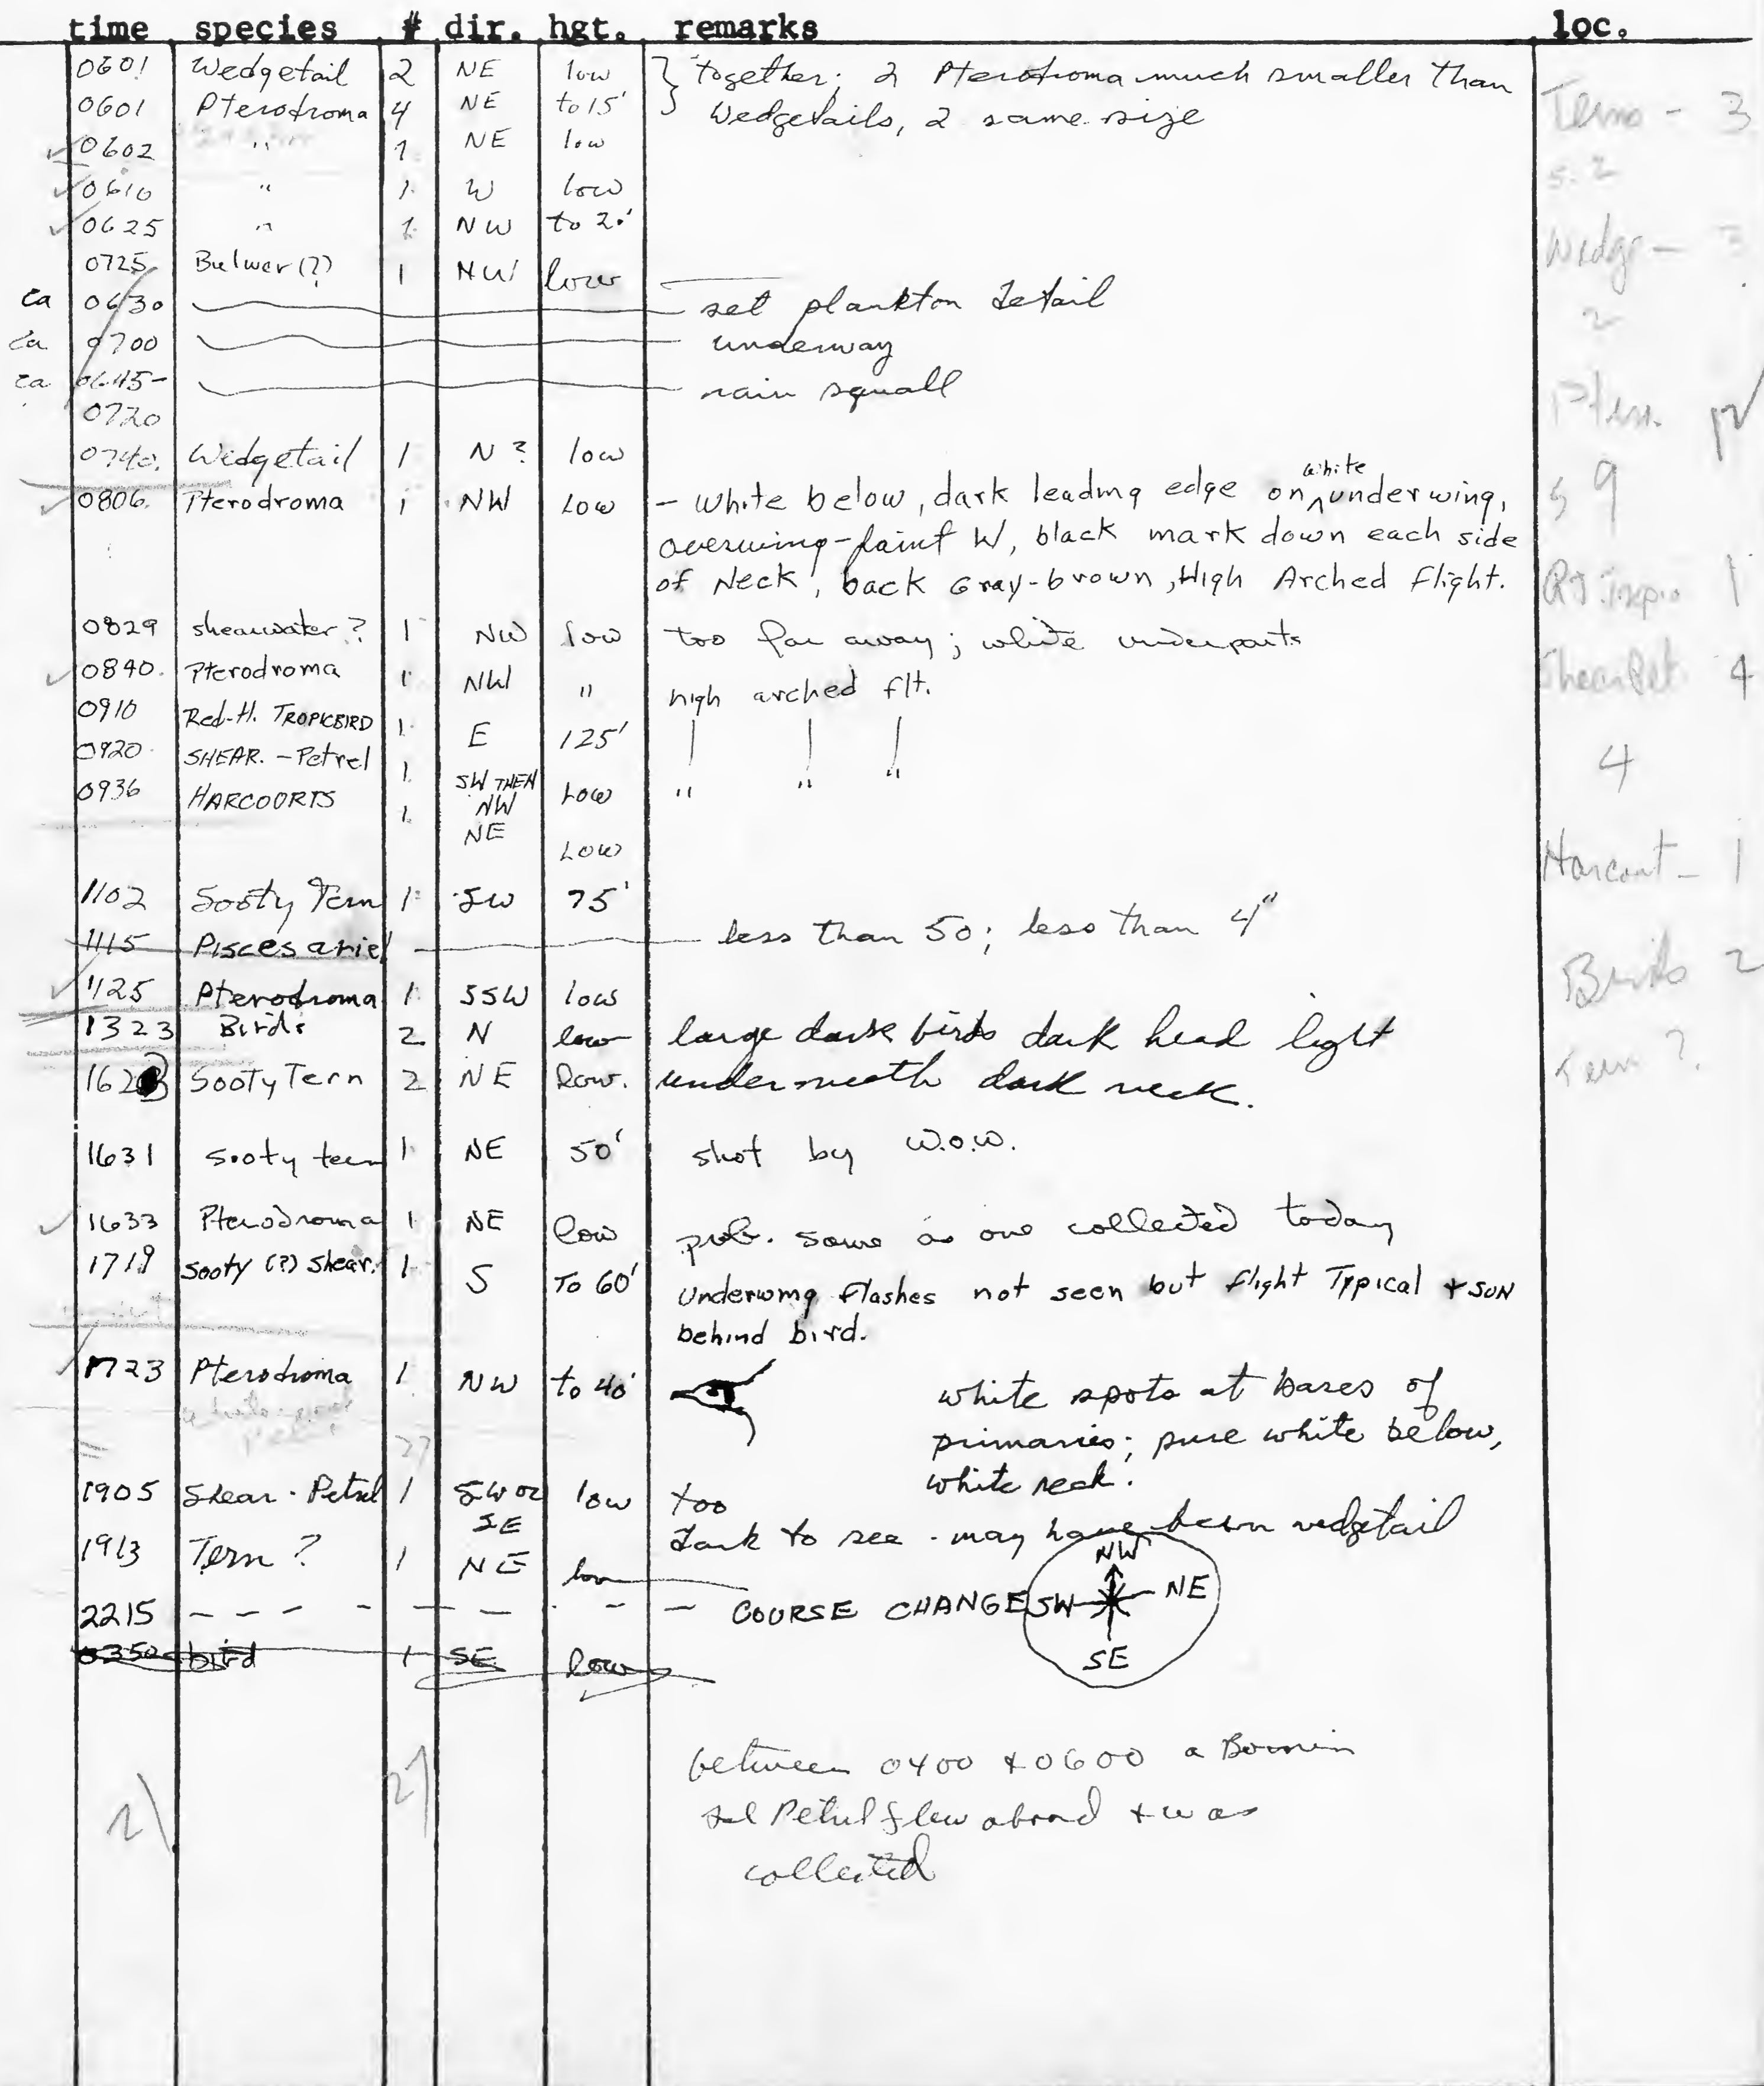 time species # dir. hgt. remarks loc.
0601 Wedgetail 2 NE low } together; 2 Pterodroma much smaller than
0601 Pterodroma 4 NE to 15' Wedgetails, 2 same size
Terns - 3
✓0602 " 1 NE low
✓0610 " 1 W low
5. 2
✓0625 " 1 NW to 20'
Wedge -
0725 Bulwer (?) 1 NW low
ca 0630 set plankton detail
2
ca 0700 underway
ca 0645-
rain squall
0720
Pter. 12
0740 Wedgetail 1 N? low
✓0806 Pterodroma 1 NW Low - White below, dark leading edge on white underwing,
5 9
overwing-faint W, black mark down each side
of Neck, back Gray-brown, High Arched Flight.
RT Tropic 1
0829 shearwater? 1 NW low too far away; white underparts
✓0840 Pterodroma 1 NW " high arched flt.
Shear Pet 4
0910 Red-H. TROPICBIRD 1 E 125'
0920 SHEAR.-Petrel 1 SW THEN NW Low " " "
4
0936 HARCOURTS 1 NE Low
Harcourt - 1
1102 Sooty Tern 1 SW 75'
1115 Pisces ariel less than 50; less than 4"
Birds 2
✓1125 Pterodroma 1 SSW low
1323 Birds 2 N low large dark birds dark head light
Tern ?
162 Sooty Tern 2 NE low. underneath dark neck.
1631 Sooty tern 1 NE 50' shot by W.O.W.
✓1633 Pterodroma 1 NE low prob. same as one collected today
1719 Sooty (?) Shear. 1 S To 60' Underwing flashes not seen but flight Typical + SUN
behind bird.
✓1723 Pterodroma 1 NW to 40' white spots at bases of
primaries; pure white below,
27
white neck.
1905 Shear-Petrel 1 SW or SE low too
dark to see - may have been wedgetail
1913 Tern? 1 NE low
NW
2215 - - - - - - - - - COURSE CHANGE SW NE
SE
0350 bird 1 SE low
between 0400 + 0600 a Bonin
Petrel flew aboard + was
collected
21 27